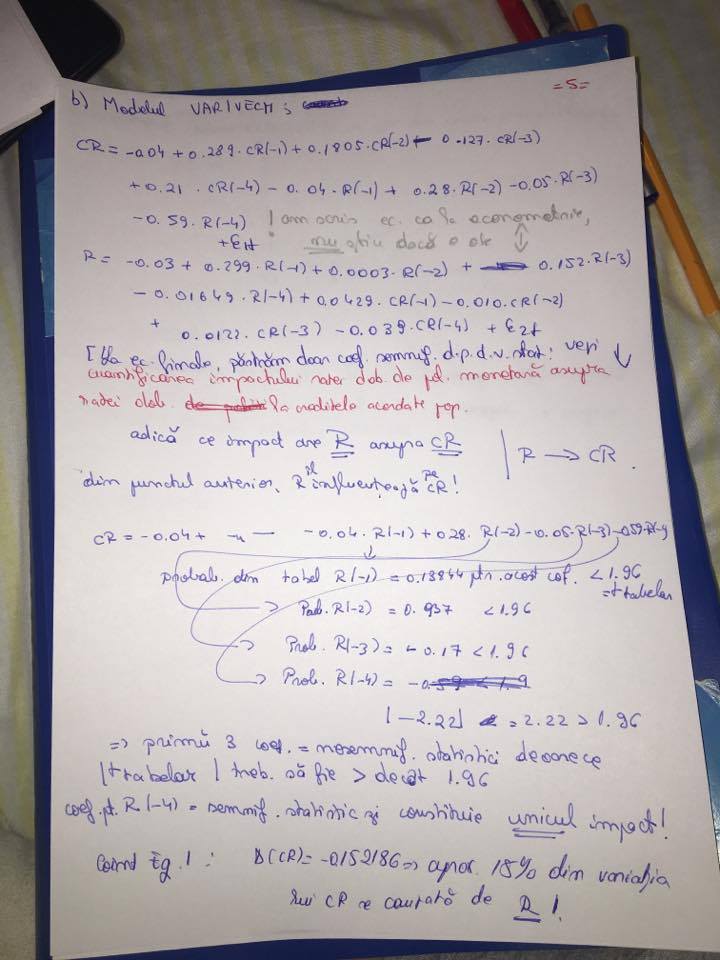 =5=
b) Modelul VAR/VECM:
CR = -0.04 + 0.289·CR(-1) + 0.1805·CR(-2) - 0.127·CR(-3)
+0.21·CR(-4) - 0.04·R(-1) + 0.28·R(-2) - 0.05·R(-3)
-0.59·R(-4) ! am scris ec. ca la econometrie,
+ε1t nu știu dacă e ok
R = -0.03 + 0.299·R(-1) + 0.0003·R(-2) + 0.152·R(-3)
- 0.01649·R(-4) + 0.0429·CR(-1) - 0.010·CR(-2)
+ 0.0122·CR(-3) - 0.039·CR(-4) + ε2t
[La ec. finale, păstrăm doar coef. semnif. d.p.d.v. stat: vezi ↓
cuantificarea impactului ratei dob. de pol. monetară asupra
ratei dob. la creditele acordate pop.
adică ce impact are R asupra CR | R → CR.
din punctul anterior, R îl influențează pe CR!
CR = -0.04 + -u- - 0.04·R(-1) + 0.28·R(-2) - 0.05·R(-3) - 0.59·R(-4)
probab. din tabel R(-1) = 0.13844 ptr. acest coef. < 1.96
= t tabelar
→ Prob. R(-2) = 0.937 < 1.96
→ Prob. R(-3) = -0.17 < 1.96
→ Prob. R(-4) =
|-2.22| = 2.22 > 1.96
=> primii 3 coef. = nesemnif. statistici deoarece
|t tabelar| treb. să fie > decât 1.96
coef. pt. R(-4) = semnif. statistic și constituie unicul impact!
Coint Eq. 1: D(CR) = -0.152186 => aprox. 15% din variația
lui CR e cauzată de R!